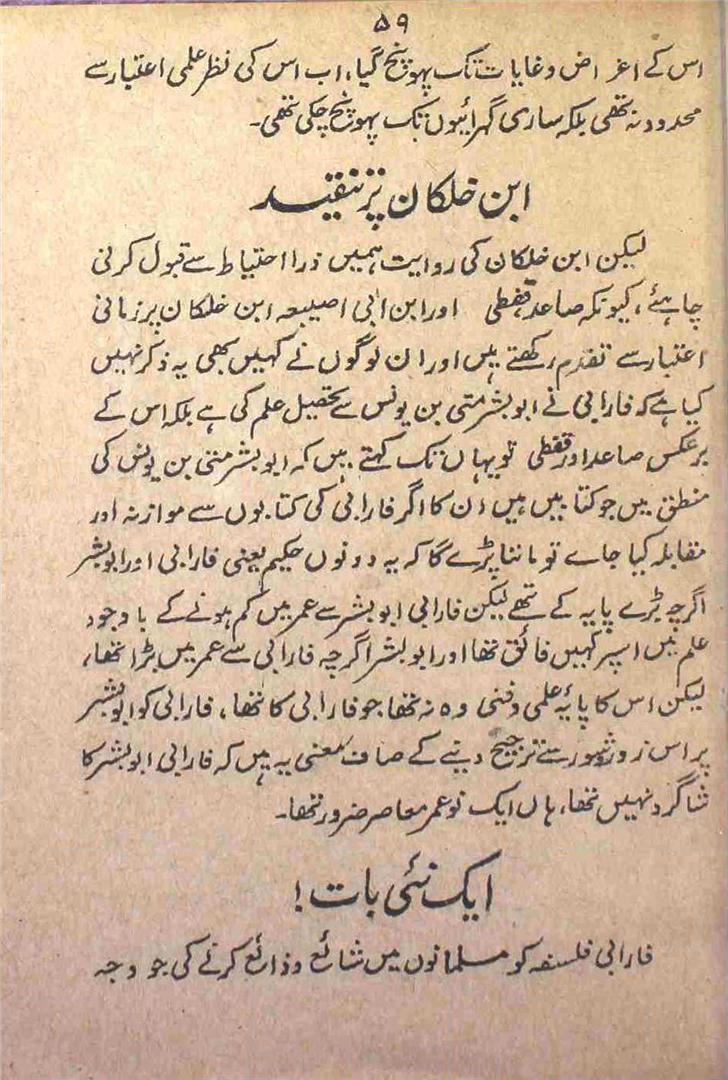 ۵۹
اس کے اغراض وغایات تک پہونچ گیا، اب اس کی نظر علمی اعتبار سے
محدود نہ تھی بلکہ ساری گہرائیوں تک پہونچ چکی تھی۔
ابن خلکان پر تنقید
لیکن ابن خلکان کی روایت ہمیں ذرا احتیاط سے قبول کرنی
چاہئے، کیونکہ صاعد، قفطی اور ابن ابی اصیبعہ ابن خلکان پر زمانی
اعتبار سے تقدم رکھتے ہیں اور ان لوگوں نے کہیں بھی یہ ذکر نہیں
کیا ہے کہ فارابی نے ابو بشر متی بن یونس سے تحصیل علم کی ہے بلکہ اس کے
برعکس صاعد اور قفطی تو یہاں تک کہتے ہیں کہ ابو بشر متی بن یونس کی
منطق میں جو کتابیں ہیں ان کا اگر فارابی کی کتابوں سے موازنہ اور
مقابلہ کیا جاے تو ماننا پڑے گا کہ یہ دونوں حکیم یعنی فارابی اور ابو بشر
اگرچہ بڑے پایہ کے تھے لیکن فارابی ابو بشر سے عمر میں کم ہونے کے باوجود
علم میں اسپر کہیں فائق تھا اور ابو بشر اگرچہ فارابی سے عمر میں بڑا تھا،
لیکن اس کا پایۂ علمی وفنی وہ نہ تھا جو فارابی کا تھا، فارابی کو ابو بشر
پر اس زور و شور سے ترجیح دینے کے صاف معنی یہ ہیں کہ فارابی ابو بشر کا
شاگرد نہیں تھا، ہاں ایک نو عمر معاصر ضرور تھا۔
ایک نئی بات!
فارابی فلسفہ کو مسلمانوں میں شائع وذائع کرنے کی جو وجہ